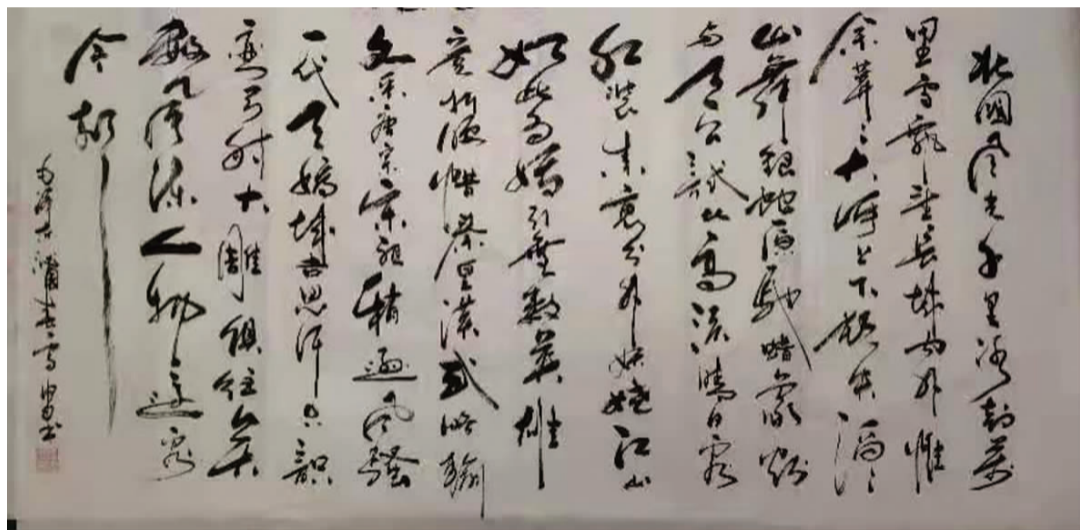 北國風光千里冰封萬
里雪飄望長城内外惟
余莽〻大河上下頓失滔〻
山舞銀蛇原馳蜡象欲
与天公試比高須晴日看
紅裝素裹分外妖嬈江山
如此多嬌引無數英雄
竞折腰惜秦皇漢武略輸
文采唐宗宋祖稍遜風騷
一代天嬌成吉思汗只識
彎弓射大雕俱往矣
數風流人物還看
今朝
毛澤东沁園春雪